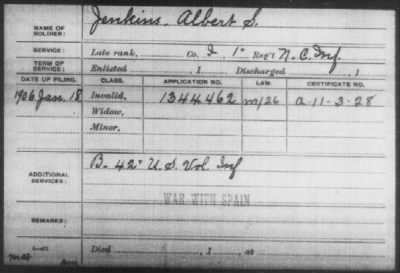 NAME OF SOLDIER: Jenkins, Albert S.
SERVICE: Late rank, Co. I, 1" Reg't N. C. Inf.
TERM OF SERVICE: Enlisted 1 Discharged , 1
DATE OF FILING. CLASS. APPLICATION NO. LAW. CERTIFICATE NO.
1906 Jan. 18. Invalid, 1344462 a-11-3-28
Widow,
Minor,
ADDITIONAL SERVICES: B- 42" U. S. Vol. Inf
WAR WITH SPAIN
REMARKS:
Died , 1 , at